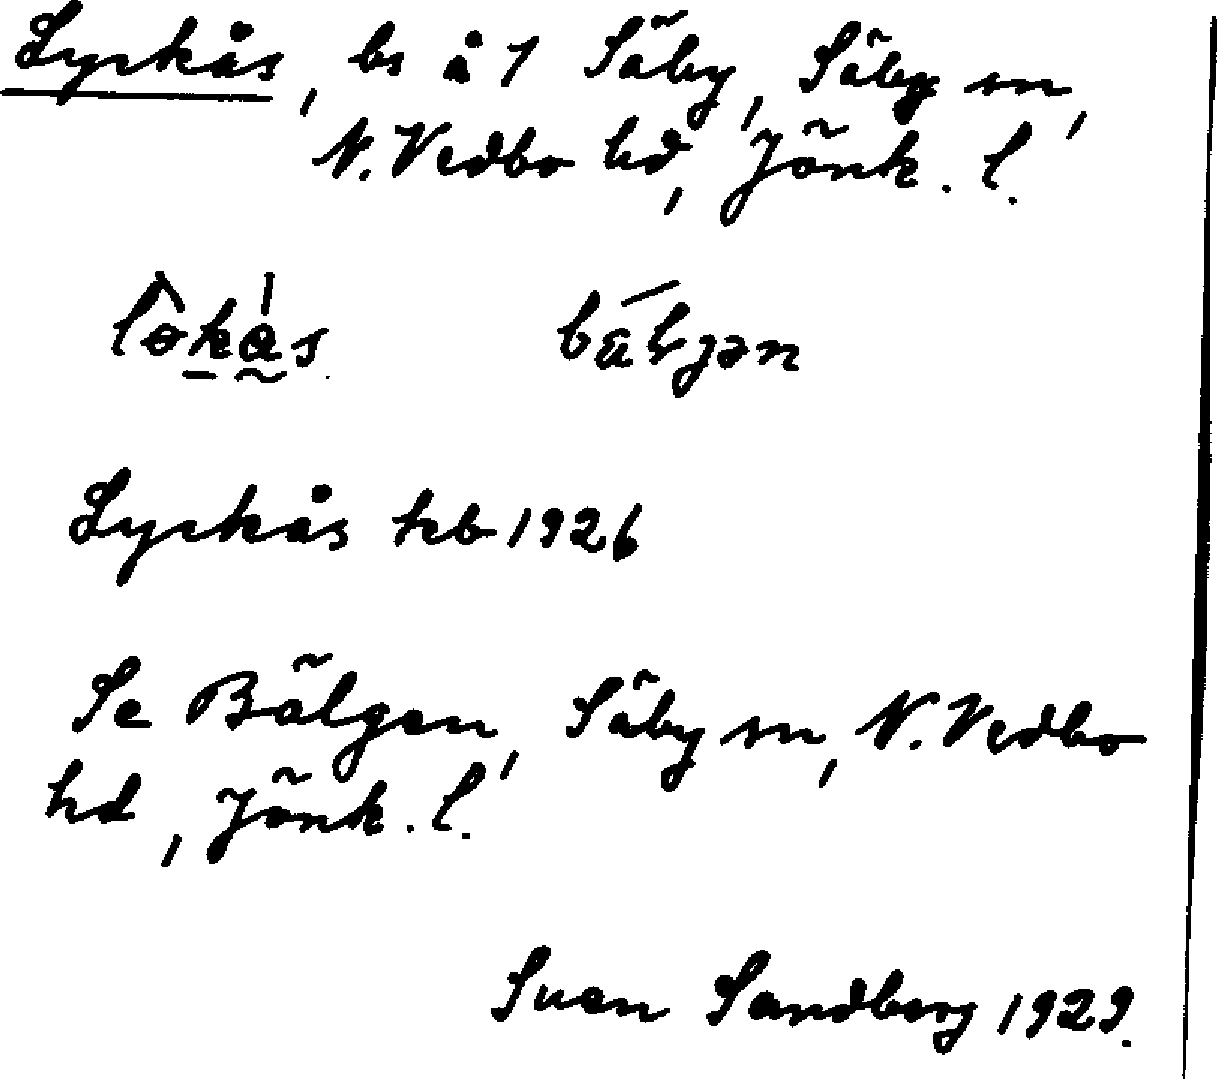 Lyckås, bs å 1 Säby, Säby sn,
N. Vedbo hd, Jönk. l.
Lyckås kb 1926
Se Bälgen, Säby sn, N. Vedbo
hd, Jönk. l.
Sven Sandberg 1929.